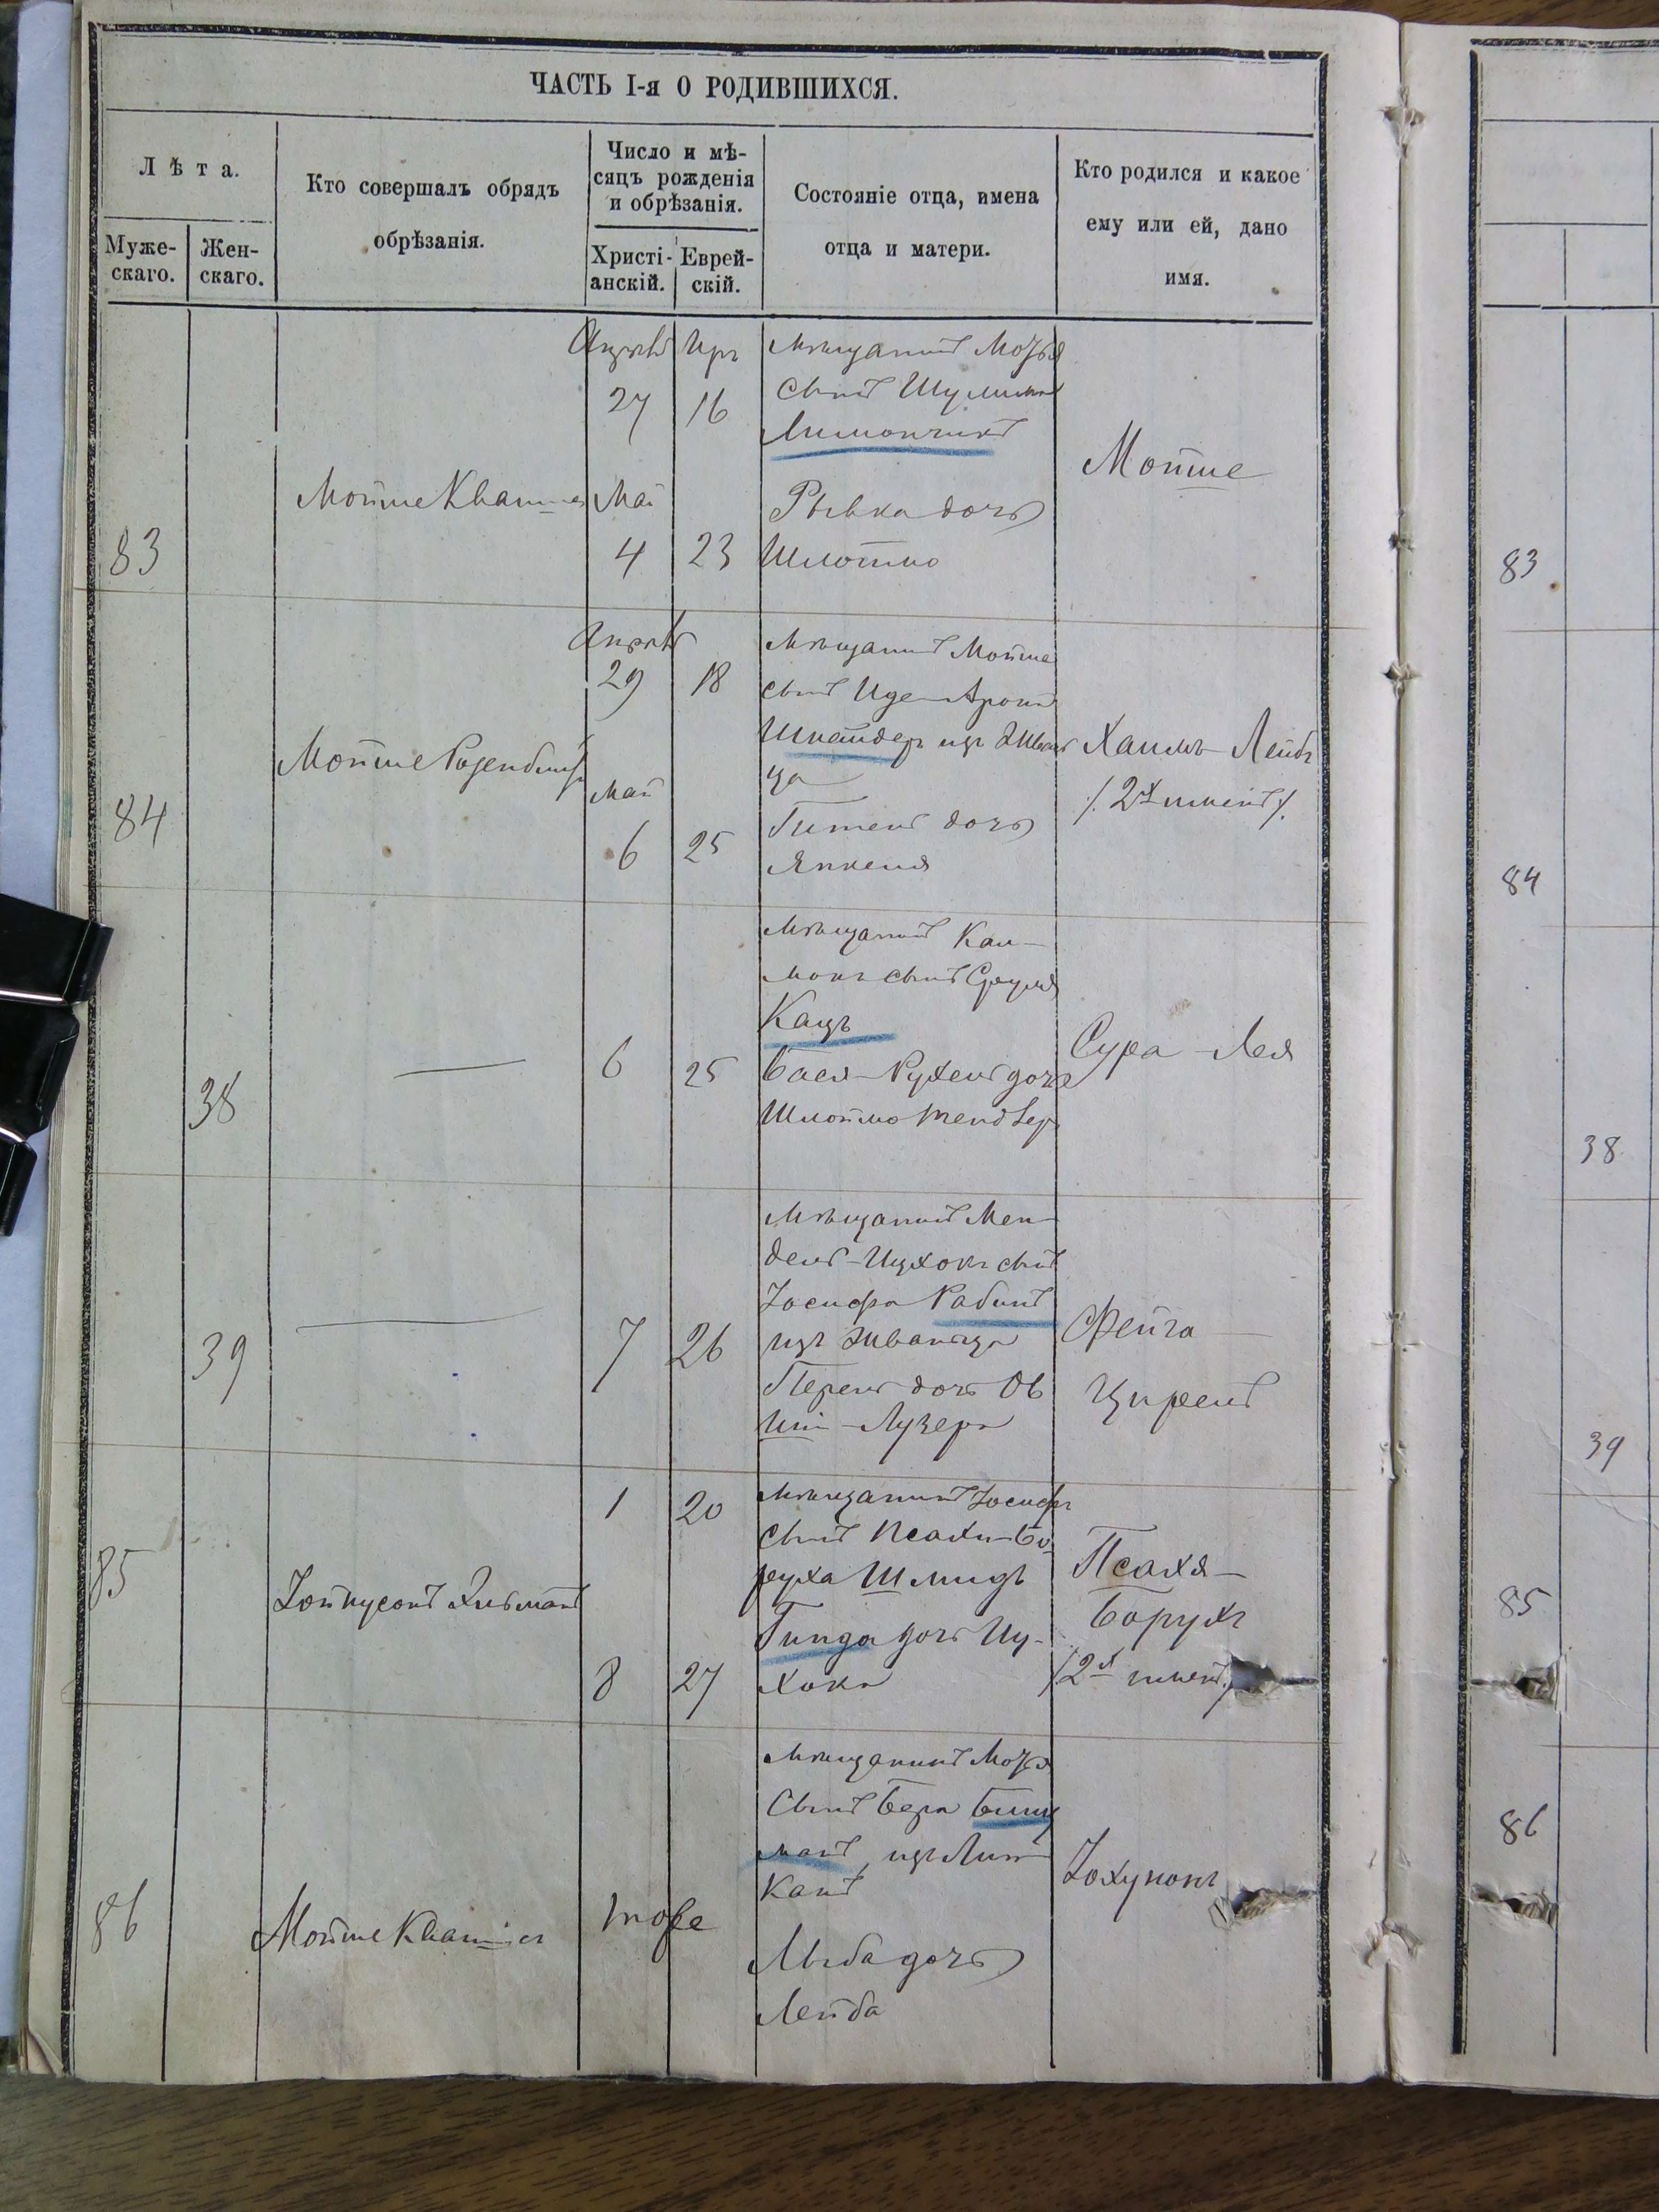 ЧАСТЬ I-я О РОДИВШИХСЯ.
Лѣта.
Муже-
скаго.
Жен-
скаго.
Кто совершалъ обрядъ
обрѣзанія.
Число и мѣ-
сяцъ рожденія
и обрѣзанія.
Христі-
анскій.
Еврей-
скій.
Состояніе отца, имена
отца и матери.
Кто родился и какое
ему или ей, дано
имя.
83
Мойше
Апрѣль
27
Май
4
Иръ
16
23
Мѣщанинъ
сынъ Шулима
Лимончикъ
Рывка дочь
Шлоймо
Мойше
84
Мойше
Апрѣль
29
Май
6
18
25
Мѣщанинъ Мойше
сынъ Иде-Арона
Шнайдеръ изъ Жван
ца
Гителъ дочь
Янкеля
Хаимъ-Лейбъ
/. 2хъ именъ /.
38
—
6
25
Мѣщанинъ Кал-
монъ сынъ Сруля
Кацъ
Бася-Рухель дочь
Шлоймо Мендлер
Сура-Лея
39
—
7
26
Мѣщанинъ Мен-
дель-Ицхокъ сынъ
Іосифа Рабинъ
изъ Жванца
Перель дочь Ов
Шія-Лузера
Фейга
Цирель
85
1
8
20
27
Мѣщанинъ Іосифъ
сынъ Псахи-Бо-
руха Шмидъ
Гинда дочь Иц-
хока
Псахя-
Борухъ
/2хъ именъ/
86
Мойше
тоже
Мѣщанинъ
сынъ Бера
манъ, изъ Лип
канъ
Лыба дочь
Лейба
83
84
38
39
85
86